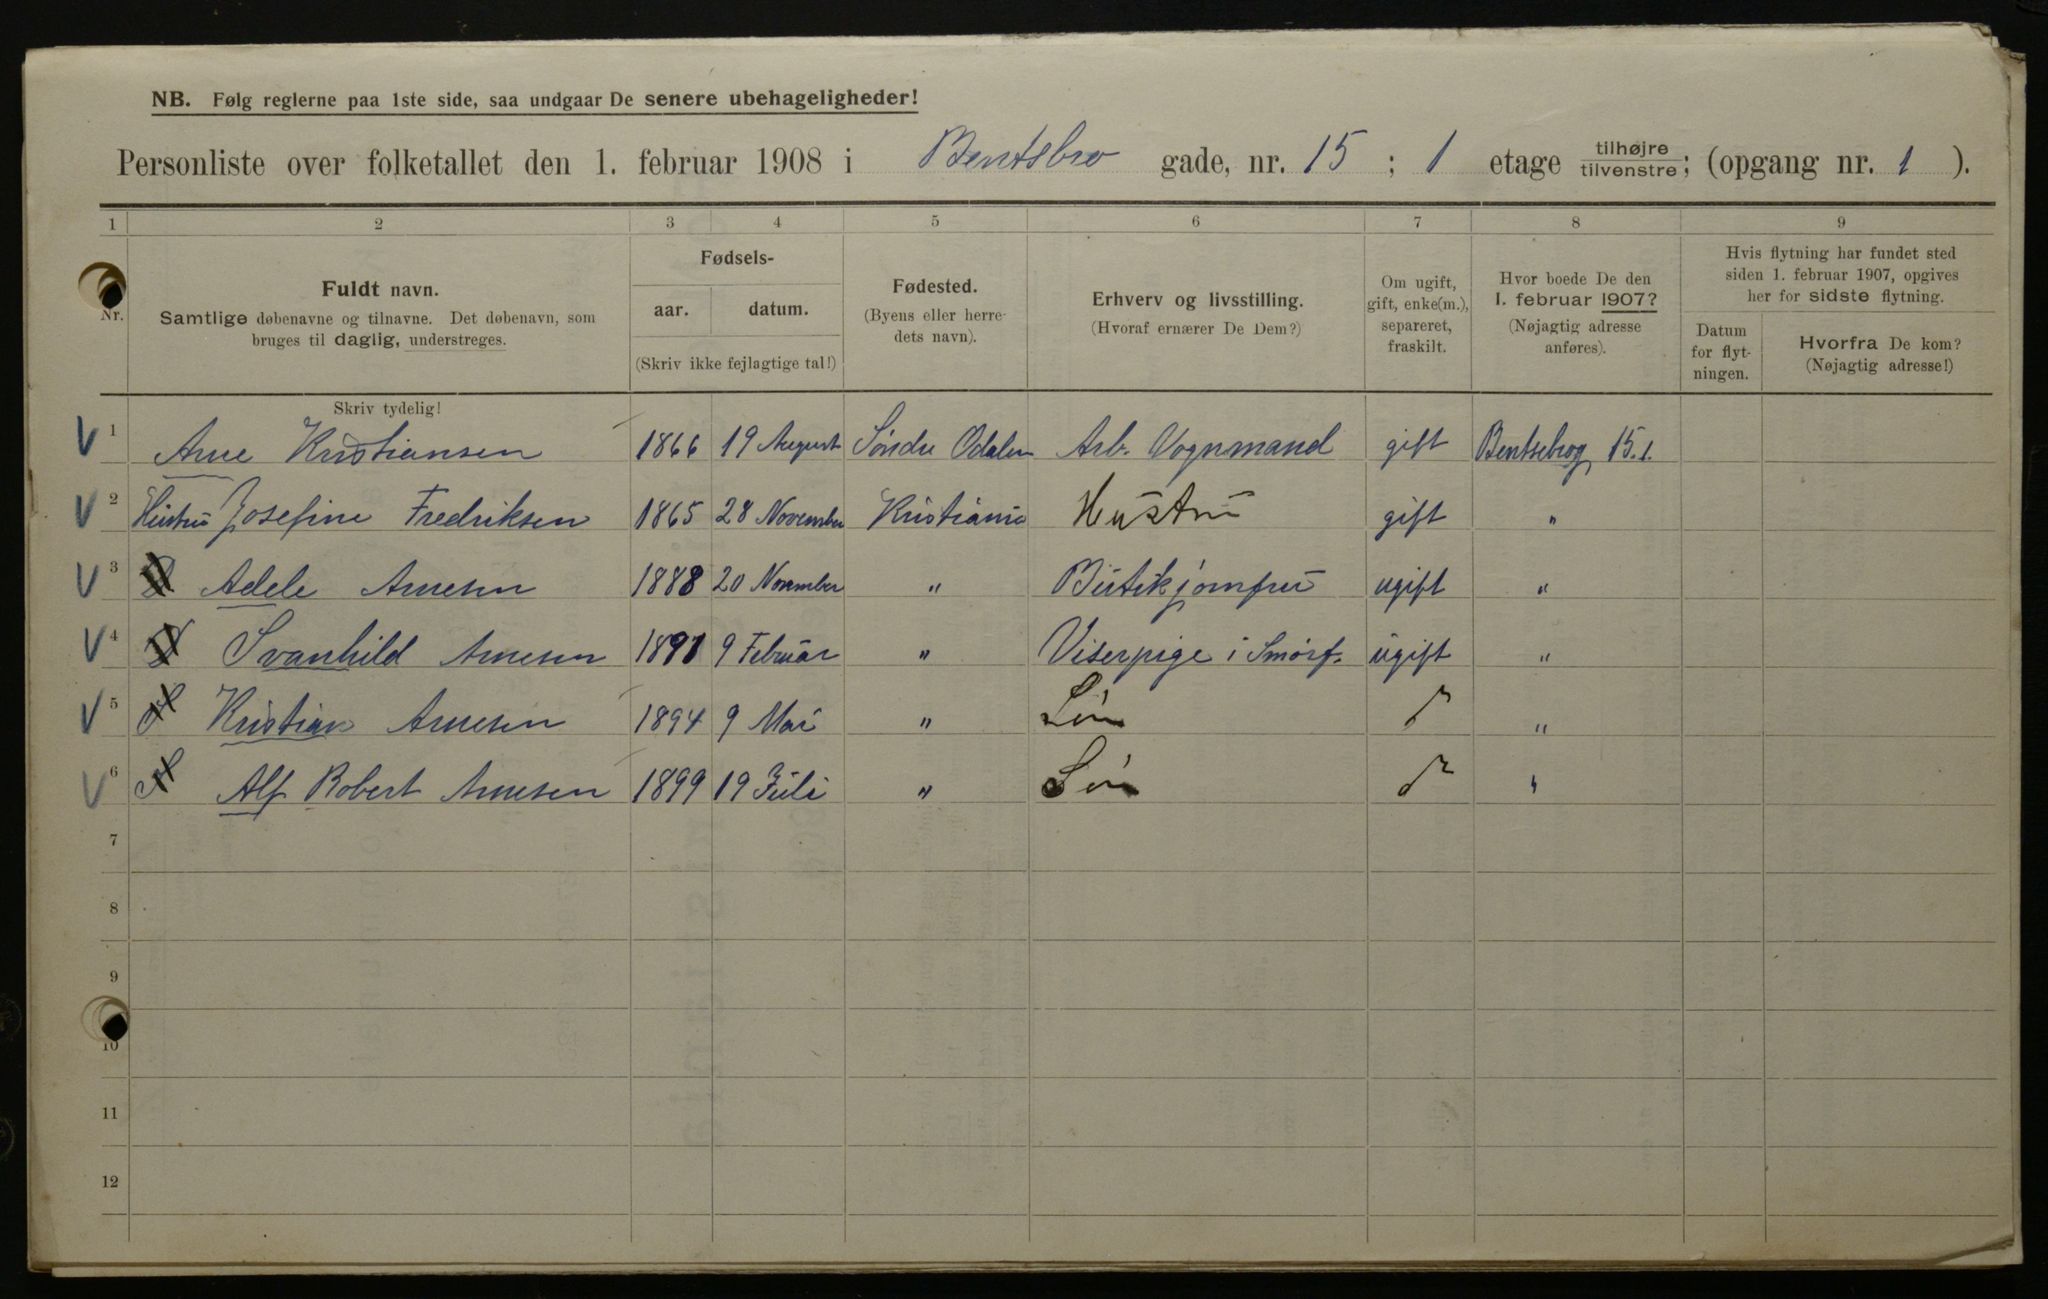 NB. Følg reglerne paa 1ste side, saa undgaar De senere ubehageligheder!
Personliste over folketallet den 1. februar 1908 i Bentsebro gade, nr. 15 ; 1 etage tilhøjre/tilvenstre; (opgang nr. 1 ).
1 2 3 4 5 6 7 8 9
Nr.
Fuldt navn.
Samtlige døbenavne og tilnavne. Det døbenavn, som
bruges til daglig, understreges.
Fødsels-
aar. datum.
(Skriv ikke fejlagtige tal!)
Fødested.
(Byens eller herre-
dets navn).
Erhverv og livsstilling.
(Hvoraf ernærer De Dem?)
Om ugift,
gift, enke(m.),
separeret,
fraskilt.
Hvor boede De den
1. februar 1907?
(Nøjagtig adresse
anføres).
Hvis flytning har fundet sted
siden 1. februar 1907, opgives
her for sidste flytning.
Datum
for flyt-
ningen.
Hvorfra De kom?
(Nøjagtig adresse!)
Skriv tydelig!
V 1 Arne Kristiansen 1866 19 August Søndre Odalen Arb. Vognmand gift Bentsebrog 15.1.
V 2 Hustru Josefine Fredriksen 1865 28 November Kristiania Hustru gift "
V 3 Adele Arnesen 1888 20 November " Butikjomfru ugift "
V 4 Svanhild Arnesen 1891 9 Februar " Viserpige i Smørf. ugift "
V 5 Kristian Arnesen 1894 9 Mai " Søn "
V 6 Alf Robert Arnesen 1899 19 Juli " Søn "
7
8
9
10
11
12